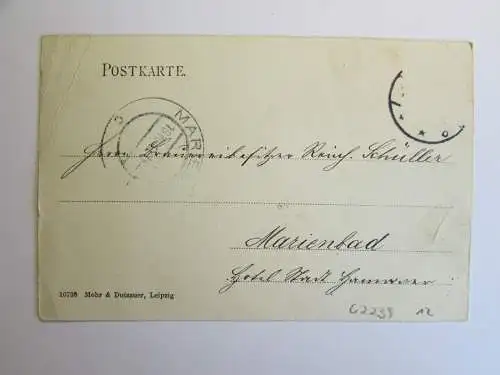 POSTKARTE.
MARI
Herrn Brauereibesitzer Reich. Schüller
Marienbad
Hotel Stadt Hannover
10738 Mohr & Dutzauer, Leipzig
62239 12